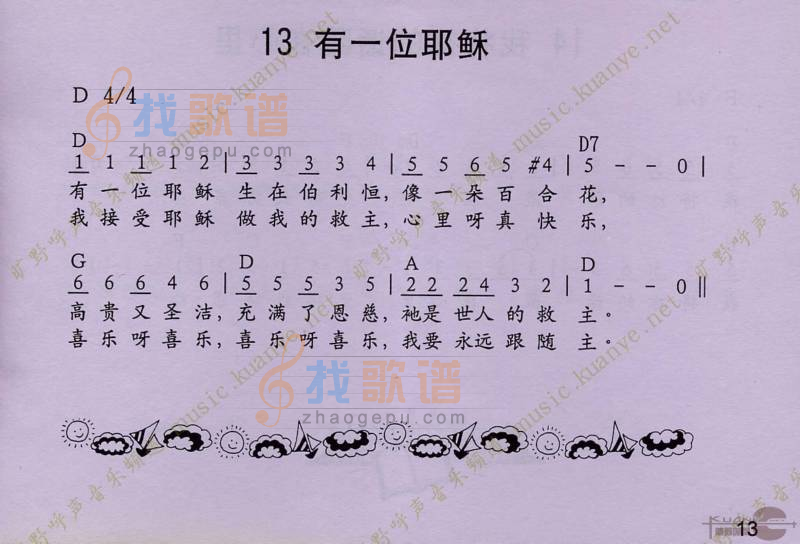 13 有一位耶稣
D 4/4
D D7
1 1 1 1 2 | 3 3 3 3 4 | 5 5 6 5 #4 | 5 - - 0 |
有一位耶稣 生在伯利恒，像一朵百合花，
我接受耶稣 做我的救主，心里呀真快乐，
G D A D
6 6 6 4 6 | 5 5 5 3 5 | 22 24 3 2 | 1 - - 0 ‖
高贵又圣洁，充满了恩慈，祂是世人的救主。
喜乐呀喜乐，喜乐呀喜乐，我要永远跟随主。
找歌谱
zhaogepu.com
找歌谱
zhaogepu.com
旷野呼声音乐频道 music.kuanye.net
13